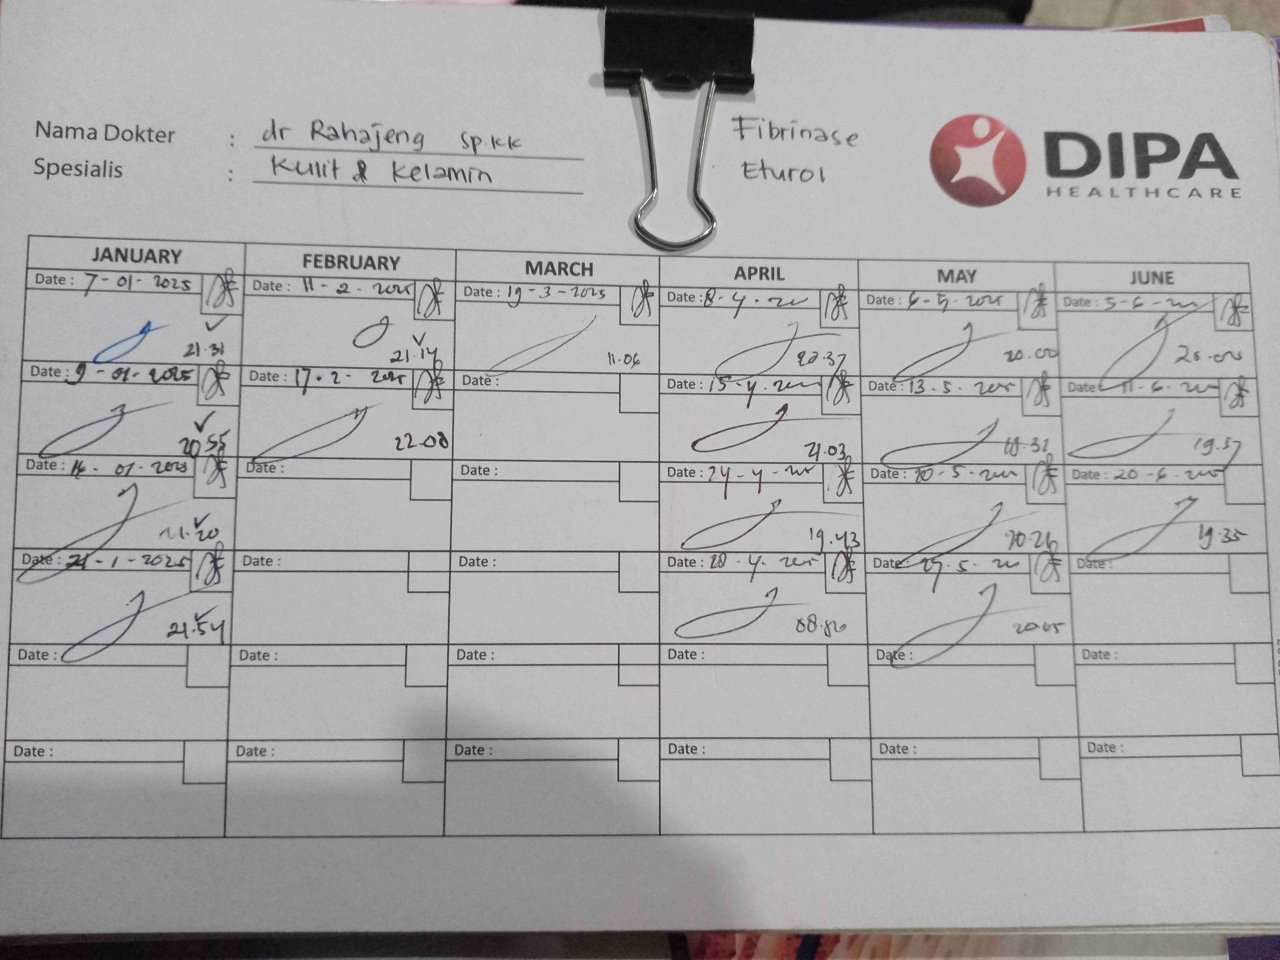 Nama Dokter : dr Rahajeng Sp.KK
Spesialis : Kulit & Kelamin
Fibrinase
Eturol
DIPA
HEALTHCARE
JANUARY FEBRUARY MARCH APRIL MAY JUNE
Date : 7-01-2025 Date : 11-2-2025 Date : 19-3-2025 Date : 8-4- Date : 6-5-2025 Date : 5-6-
21.31 21.14 11.06 20.37 20.00 20.00
Date : 9-01-2025 Date : 17-2-2025 Date : Date : 15-4- Date : 13-5-2025 Date : 11-6-
20.55 22.08 21.03 18.32 19.37
Date : 14-01-2025 Date : Date : Date : 24-4- Date : 20-5- Date : 20-6-2025
21.20 19.43 20.26 19.35
Date : 21-1-2025 Date : Date : Date : 28-4-2025 Date : 27-5- Date :
21.54 20.05
Date : Date : Date : Date : Date : Date :
Date : Date : Date : Date : Date : Date :